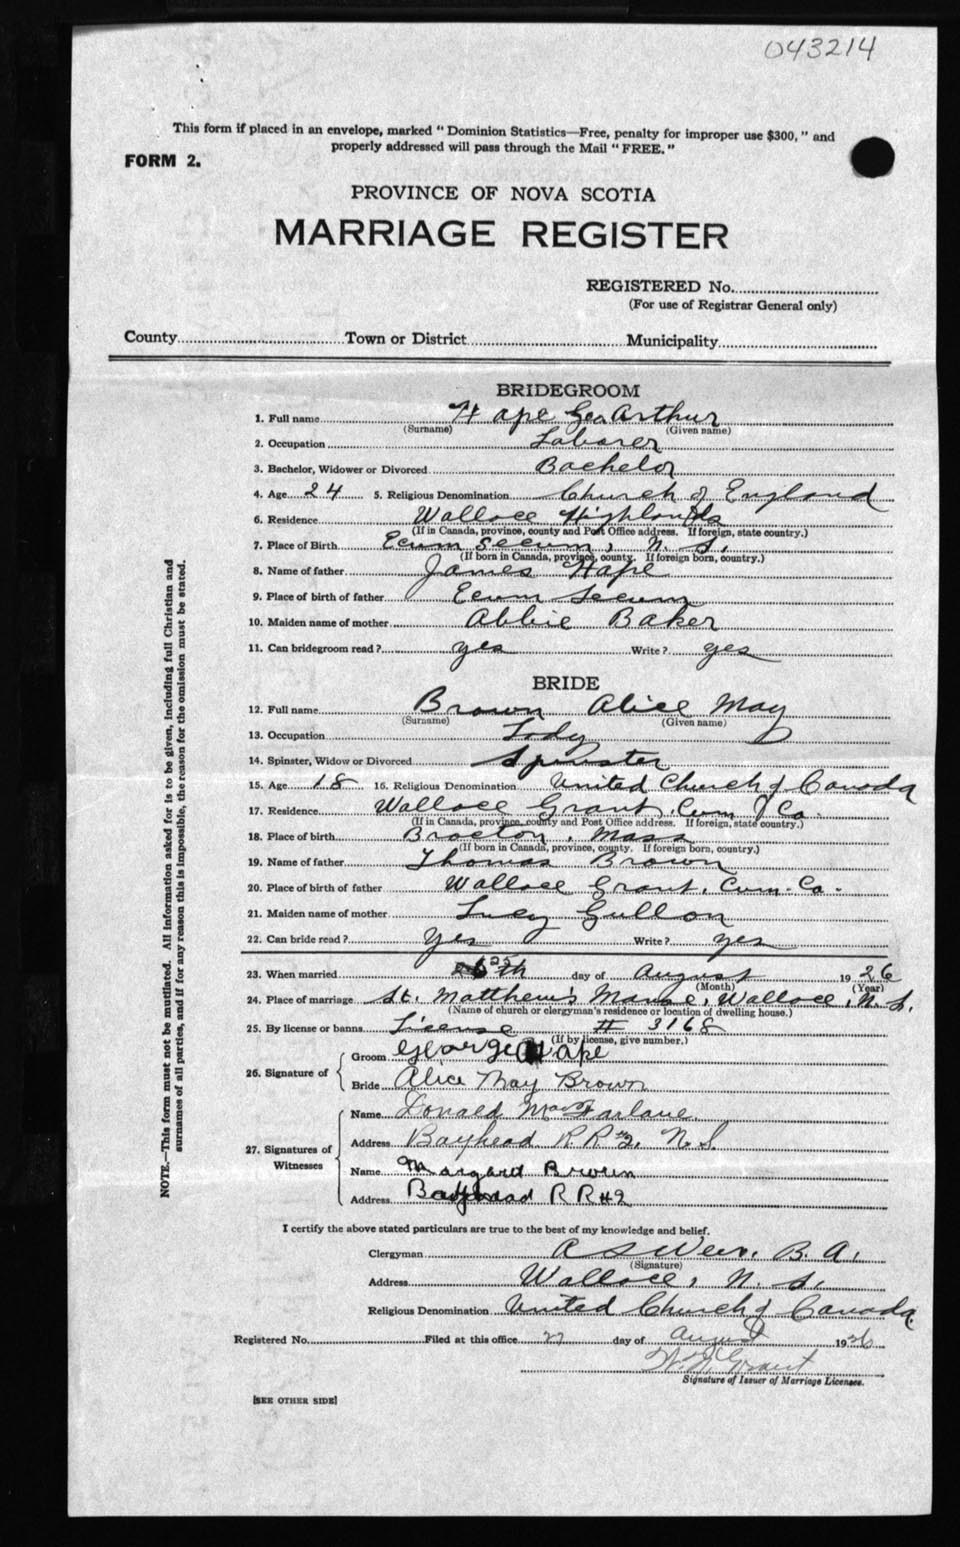 043214
This form if placed in an envelope, marked "Dominion Statistics—Free, penalty for improper use $300," and
properly addressed will pass through the Mail "FREE."
FORM 2.
PROVINCE OF NOVA SCOTIA
MARRIAGE REGISTER
REGISTERED No.
(For use of Registrar General only)
County Town or District Municipality
BRIDEGROOM
1. Full name Hape Geo Arthur
(Surname) (Given name)
2. Occupation Laborer
3. Bachelor, Widower or Divorced Bachelor
4. Age 24 5. Religious Denomination Church of England
6. Residence Wallace Highlands
(If in Canada, province, county and Post Office address. If foreign, state country.)
7. Place of Birth Ecum Secum, N. S.
(If born in Canada, province, county. If foreign born, country.)
8. Name of father James Hape
9. Place of birth of father Ecum Secum
10. Maiden name of mother Abbie Baker
11. Can bridegroom read? yes Write? yes
BRIDE
12. Full name Brown Alice May
(Surname) (Given name)
13. Occupation Lady
14. Spinster, Widow or Divorced Spinster
15. Age 18 16. Religious Denomination United Church of Canada
17. Residence Wallace Grant, Cum Co.
(If in Canada, province, county and Post Office address. If foreign, state country.)
18. Place of birth Brocton, Mass
(If born in Canada, province, county. If foreign born, country.)
19. Name of father Thomas Brown
20. Place of birth of father Wallace Grant, Cum. Co.
21. Maiden name of mother Lucy Gullon
22. Can bride read? Yes Write? yes
23. When married 25th day of August 1926
(Month) (Year)
24. Place of marriage St. Matthew's Manse, Wallace, N. S.
(Name of church or clergyman's residence or location of dwelling house.)
25. By license or banns License # 3168
(If by license, give number.)
26. Signature of
Groom George Hape
Bride Alice May Brown
27. Signatures of Witnesses
Name Donald MacFarlane
Address Bayhead R.R #2, N.S
Name Margaret Brown
Address Bayhead R R #2
I certify the above stated particulars are true to the best of my knowledge and belief.
Clergyman A S Weir, B. A.
(Signature)
Address Wallace, N. S.
Religious Denomination United Church of Canada.
Registered No. Filed at this office 27 day of August 1926
Grant
Signature of Issuer of Marriage Licenses.
[SEE OTHER SIDE]
NOTE.—This form must not be mutilated. All information asked for is to be given, including full Christian and
surnames of all parties, and if for any reason this is impossible, the reason for the omission must be stated.